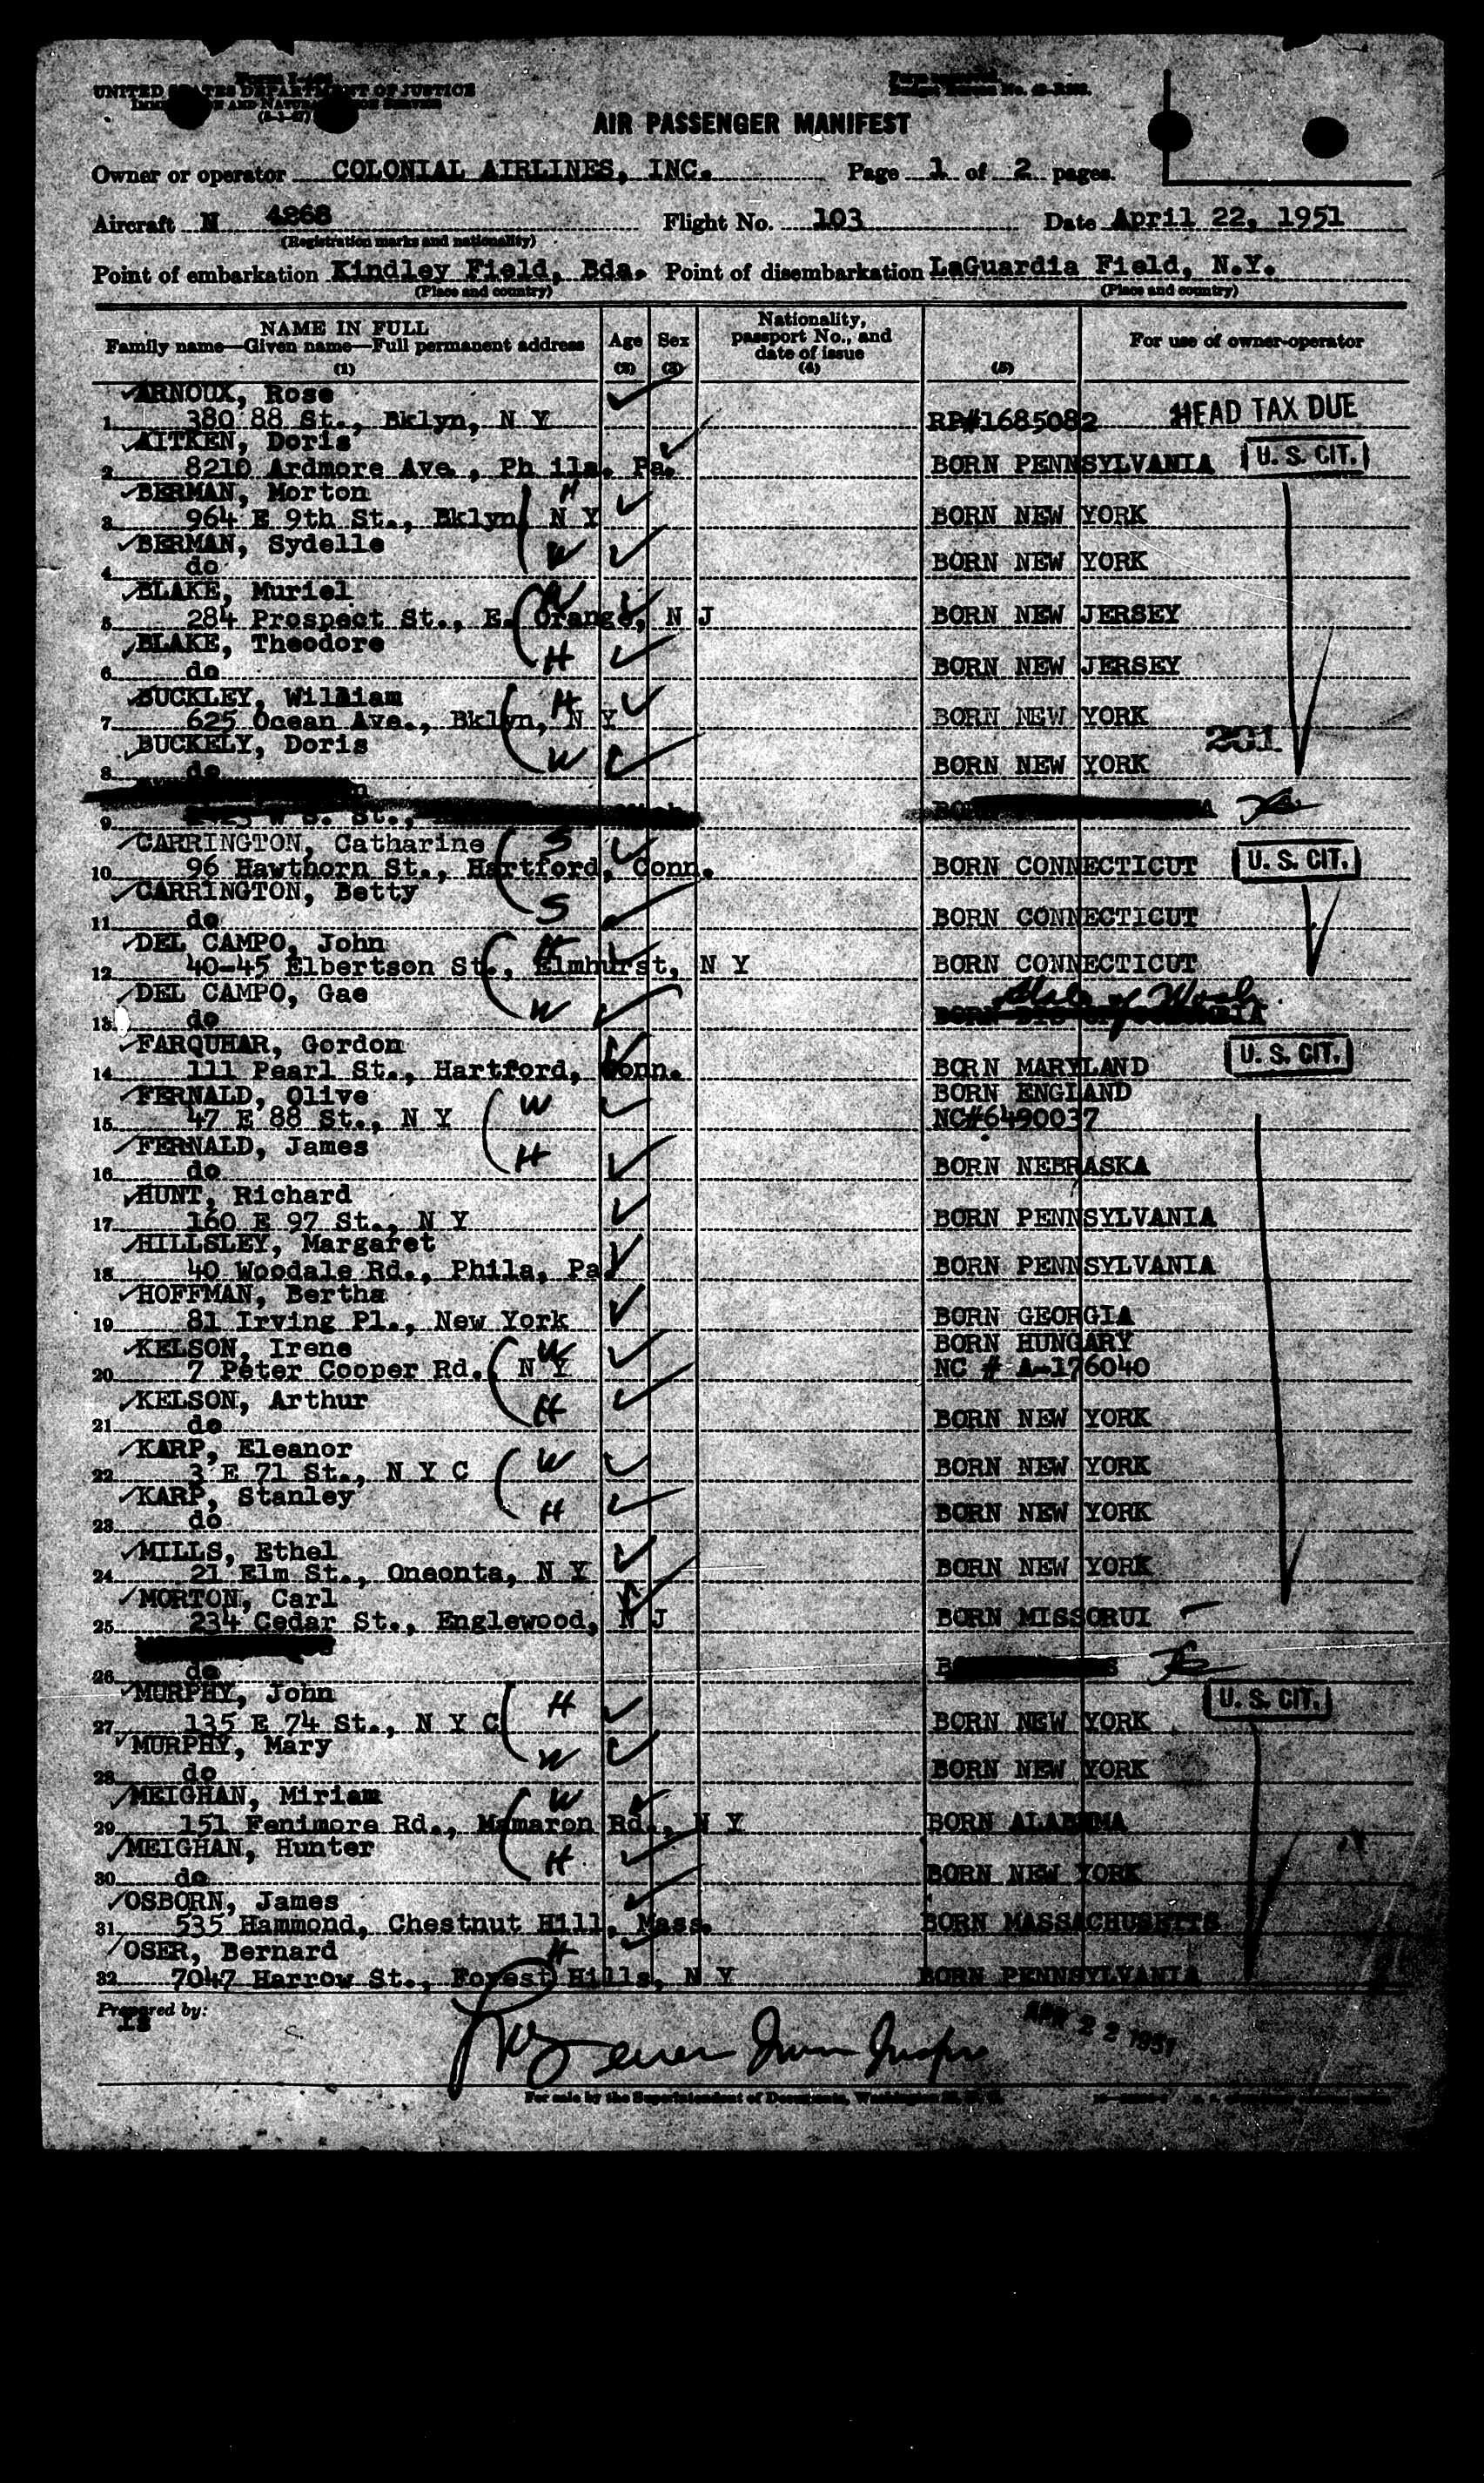 UNITED STATES DEPARTMENT OF JUSTICE
AIR PASSENGER MANIFEST
Owner or operator COLONIAL AIRLINES, INC. Page 1 of 2 pages.
Aircraft N 4268 Flight No. 103 Date April 22, 1951
(Registration marks and nationality)
Point of embarkation Kindley Field, Bda. Point of disembarkation LaGuardia Field, N.Y.
(Place and country) (Place and country)
NAME IN FULL
Family name—Given name—Full permanent address
(1)
Age
(2)
Sex
(3)
Nationality,
passport No., and
date of issue
(4)
(5)
For use of owner-operator
ARNOUX, Rose
1 380 88 St., Bklyn, N Y RP#1685082 HEAD TAX DUE
AITKEN, Doris
2 8210 Ardmore Ave., Ph ila. Pa. BORN PENNSYLVANIA U. S. CIT.
BERMAN, Morton H
3 964 E 9th St., Bklyn, N Y BORN NEW YORK
BERMAN, Sydelle W
4 do BORN NEW YORK
BLAKE, Muriel W
5 284 Prospect St., E. Orange, N J BORN NEW JERSEY
BLAKE, Theodore H
6 do BORN NEW JERSEY
BUCKLEY, William H
7 625 Ocean Ave., Bklyn, N Y BORN NEW YORK
201
BUCKELY, Doris W
8 do BORN NEW YORK
9
CARRINGTON, Catharine S
10 96 Hawthorn St., Hartford, Conn. BORN CONNECTICUT U. S. CIT.
CARRINGTON, Betty S
11 do BORN CONNECTICUT
DEL CAMPO, John H
12 40-45 Elbertson St., Elmhurst, N Y BORN CONNECTICUT
DEL CAMPO, Gae W State of Wash.
13 do
FARQUHAR, Gordon U. S. CIT.
14 111 Pearl St., Hartford, Conn. BORN MARYLAND
FERNALD, Olive W BORN ENGLAND
15 47 E 88 St., N Y NC#6490037
FERNALD, James H
16 do BORN NEBRASKA
HUNT, Richard
17 160 E 97 St., N Y BORN PENNSYLVANIA
HILLSLEY, Margaret
18 40 Woodale Rd., Phila, Pa. BORN PENNSYLVANIA
HOFFMAN, Bertha
19 81 Irving Pl., New York BORN GEORGIA
KELSON, Irene W BORN HUNGARY
20 7 Peter Cooper Rd., N Y NC # A-176040
KELSON, Arthur H
21 do BORN NEW YORK
KARP, Eleanor W
22 3 E 71 St., N Y C BORN NEW YORK
KARP, Stanley H
23 do BORN NEW YORK
MILLS, Ethel
24 21 Elm St., Oneonta, N Y BORN NEW YORK
MORTON, Carl
25 234 Cedar St., Englewood, N J BORN MISSORUI
26 do
MURPHY, John H U. S. CIT.
27 135 E 74 St., N Y C BORN NEW YORK
MURPHY, Mary W
28 do BORN NEW YORK
MEIGHAN, Miriam W
29 151 Fenimore Rd., Mamaron Rd., N Y BORN ALABAMA
MEIGHAN, Hunter H
30 do BORN NEW YORK
OSBORN, James
31 535 Hammond, Chestnut Hill, Mass. BORN MASSACHUSETTS
OSER, Bernard H
32 7047 Harrow St., Forest Hills, N Y BORN PENNSYLVANIA
Prepared by:
APR 22 1951
For sale by the Superintendent of Documents, Washington